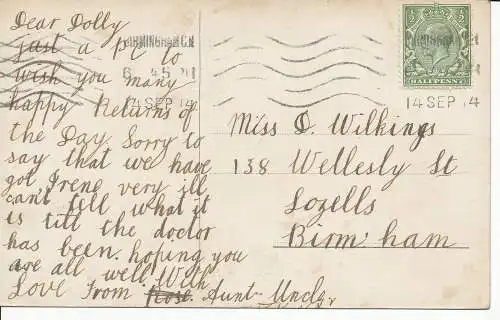 Dear Dolly
just a PC to
wish you many
happy Returns of
the Day Sorry to
say that we have
got Irene very ill
can't tell what it
is till the doctor
has been. hoping you
are all well. With
Love From Rose. Aunt - Uncle
BIRMINGHAM
6 45
14 SEP 14
HALFPENNY
14 SEP 14
Miss D. Wilkings
138 Wellesly St
Lozells
Birm'ham